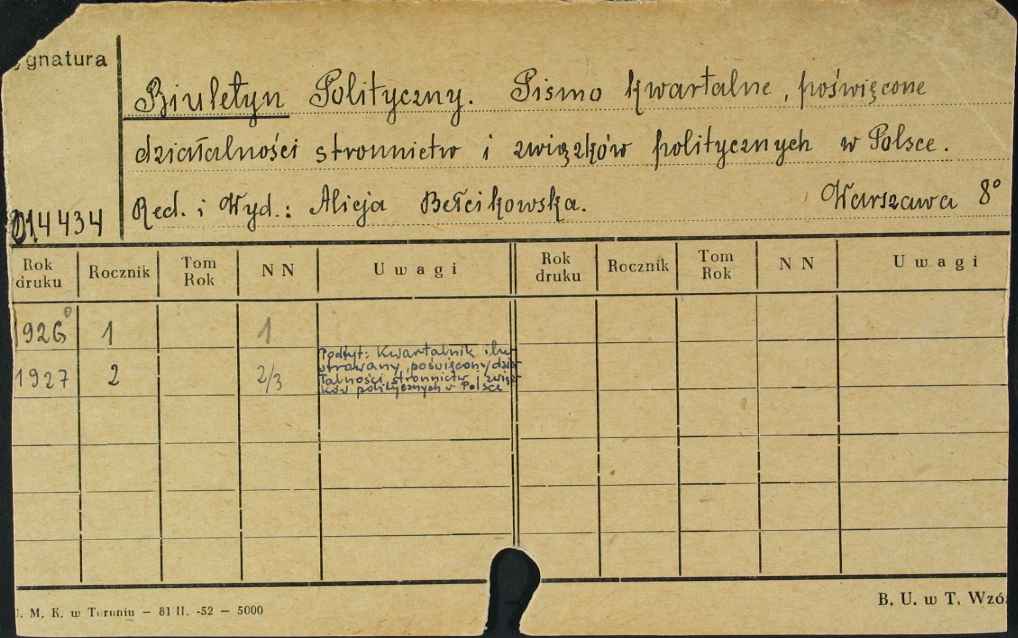 ygnatura
Biuletyn Polityczny. Pismo kwartalne, poświęcone
działalności stronnictw i związków politycznych w Polsce.
014434
Red. i Wyd.: Alicja Bełcikowska. Warszawa 8°
Rok druku Rocznik Tom Rok NN Uwagi Rok druku Rocznik Tom Rok NN Uwagi
1926 1 1
1927 2 2/3
Podtyt: Kwartalnik ilu-
strowany, poświęcony dzia
łalności stronnictw i zwią-
ków politycznych w Polsce
. M. K. w Toruniu — 81 II. -52 — 5000
B. U. w T. Wzó